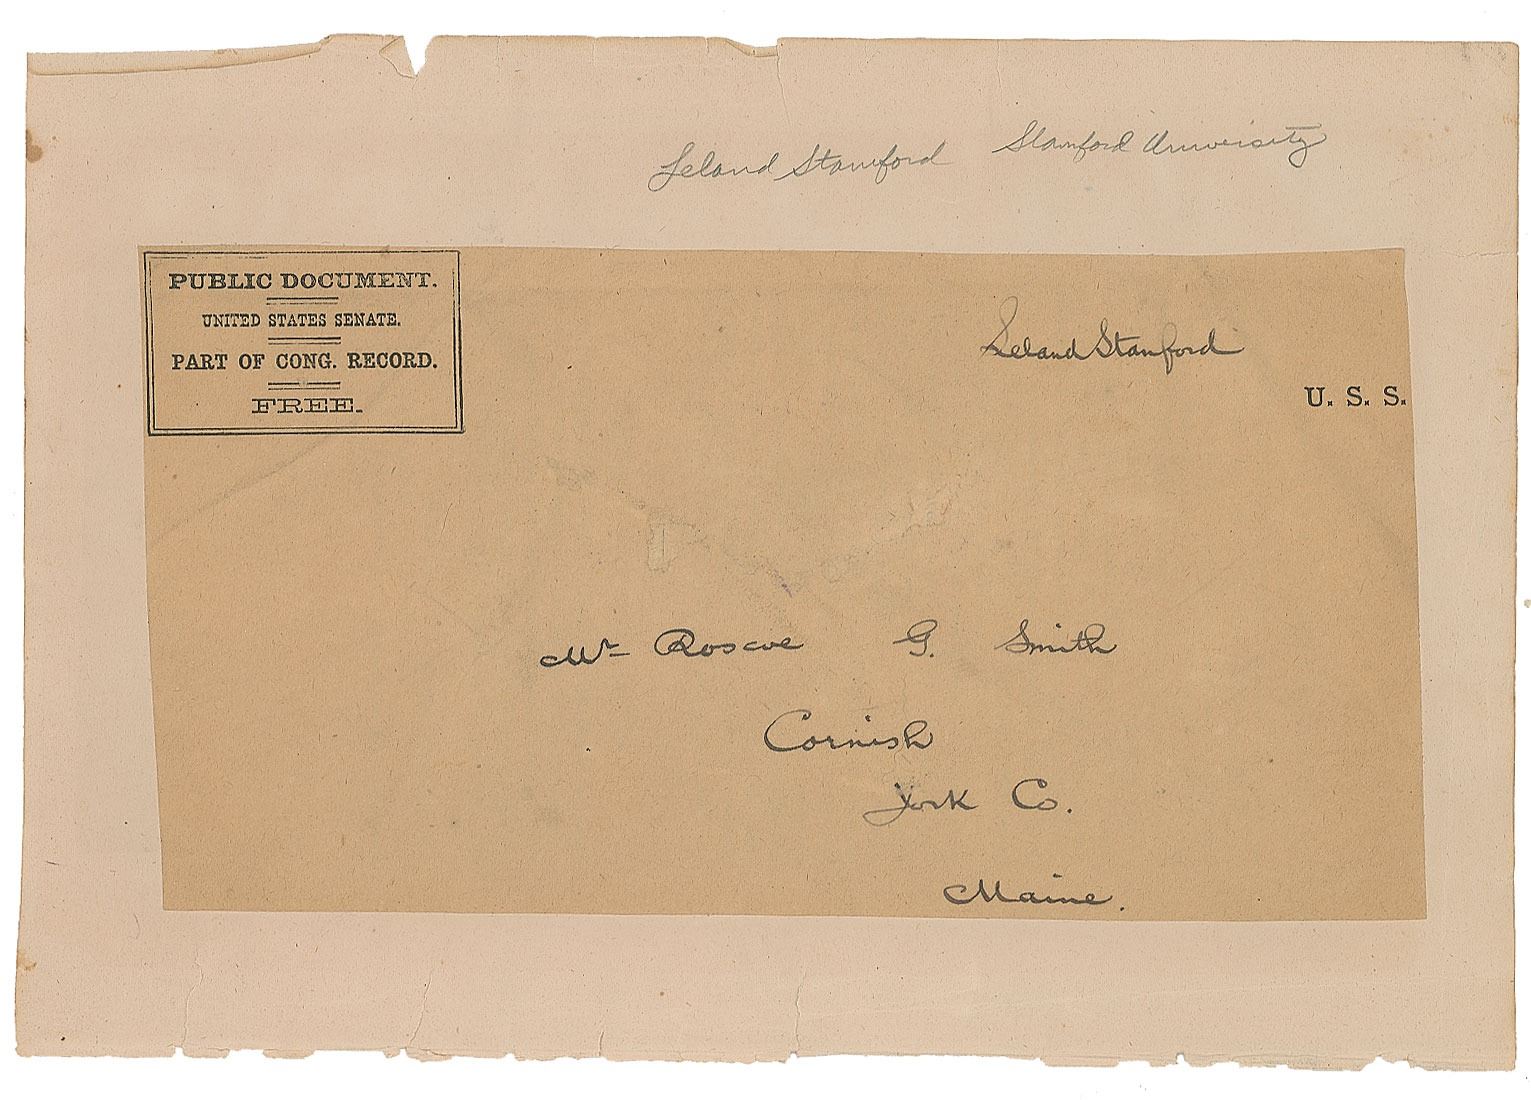 Leland Stanford Stanford University
PUBLIC DOCUMENT.
UNITED STATES SENATE.
PART OF CONG. RECORD.
FREE.
Leland Stanford
U. S. S.
Mr Roscoe G. Smith
Cornish
York Co.
Maine.